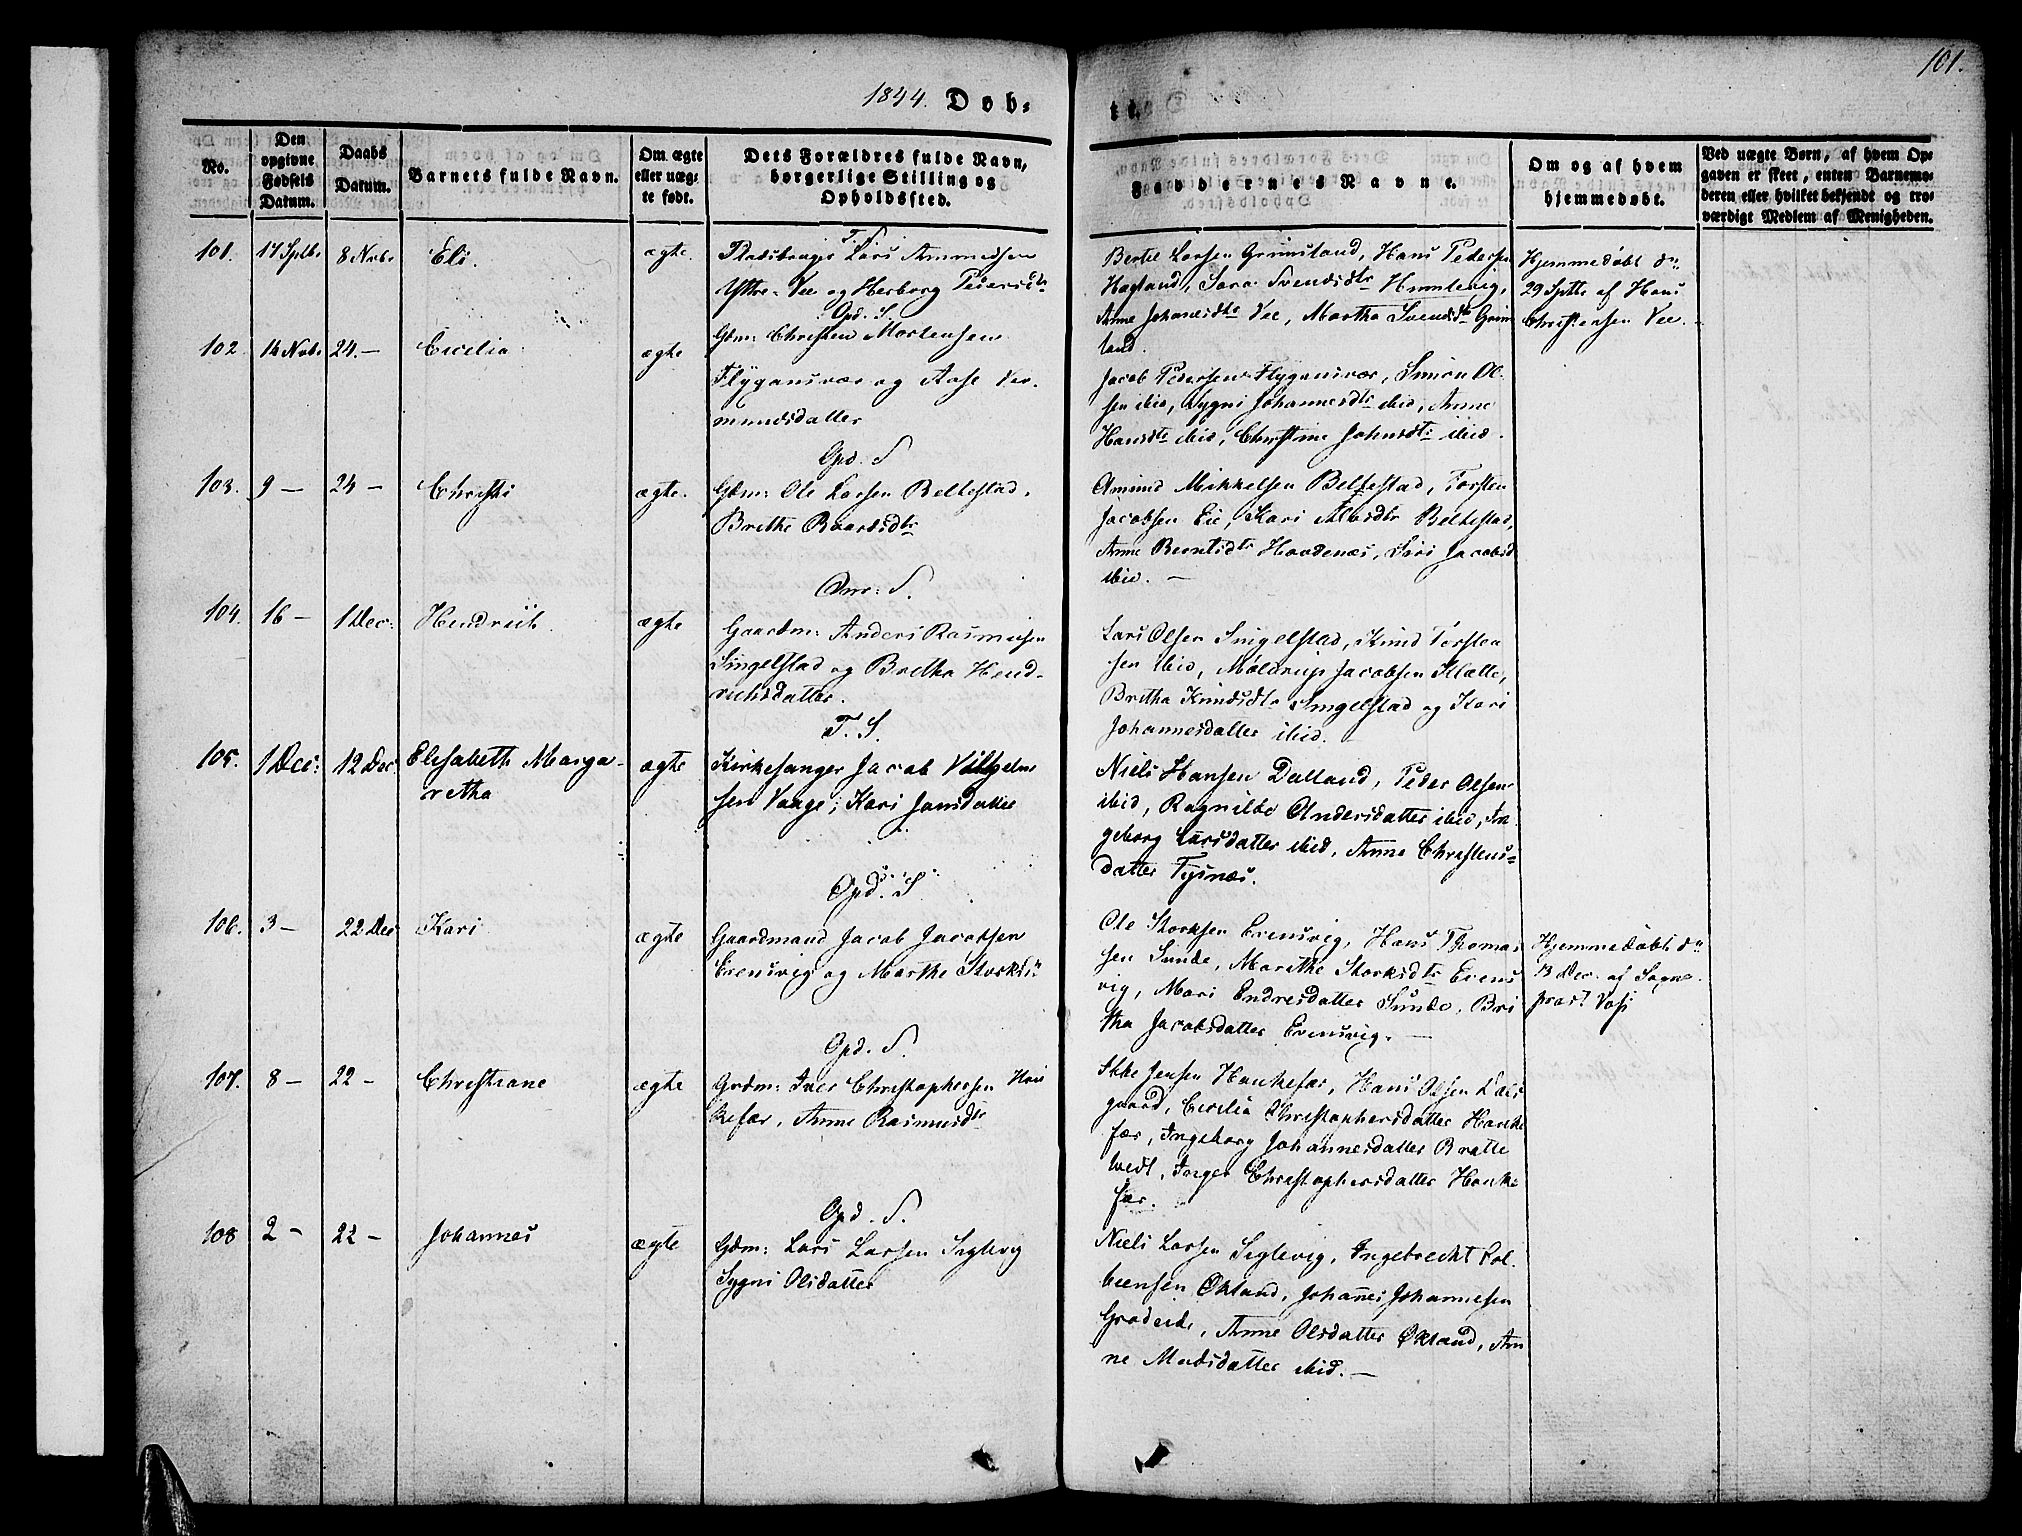 101.
1844. Døb-
te.
No.
Den opgivne Fødsels Datum.
Daabs Datum.
Barnets fulde Navn.
Om ægte eller uægte født.
Dets Forældres fulde Navn, borgerlige Stilling og Opholdssted.
Faddernes Navne.
Om og af hvem hjemmedøbt.
Ved uægte Børn, af hvem Opgaven er skeet, enten Barnemoderen eller hvilket bekjendt og troværdigt Medlem af Menigheden.
T. S.
101. 17 Sptbr 8 Nvbr Eli. ægte. Pladsbruger Lars Ammedsen
Yttre-Vee og Herborg Peiersdtr
Bertel Larsen Grimstand, Hans Pedersen
Hagland, Sara Svendsdtr Humlevig,
Anne Johanesdtr Vee, Martha Svendsdtr Grim
land.
Hjemmedøbt dn
29 Sptbr af Hans
Christensen Vee.
Opd. S.
102. 14 Nvbr 24.- Cecelia ægte Gdm: Christen Mortensen
Flygansvær og Aase Ver-
mundsdatter
Jacob Pedersen Flygansvær, Simon Ol-
sen ibid, Sygni Johannesdtr ibid, Anne
Hansdtr ibid, Christine Johnsdtr ibid.
Opd. S
103. 9 - 24 - Christi ægte. Gdm: Ole Larsen Beltestad,
Brithe Baardsdtr
Amund Mikkelsen Beltestad, Torsten
Jacobsen Eie, Kari Alsdtr Beltestad,
Anne Berntsdtr Hovdenæs, Siri Jacobsd
ibid. -
Onr: S.
104. 16 - 1 Dec: Hendrick ægte Gaardm: Anders Rasmusen
Singelstad og Britha Hend-
richsdatter.
Lars Olsen Singelstad, Knud Torsten
sen ibid, Møldrup Jacobsen Flatte,
Britha Knudsdtr Singelstad og Kari
Johannesdatter ibid.
T. S.
105. 1 Dec: 12 Dec Elisabeth Marga-
retha
ægte Kirkesanger Jacob Vilhelm
sen Vaage, Kari Jansdatter
Niels Hansen Dalland, Peder Olsen
ibid, Ragnilde Andersdatter ibid, In
geborg Larsdatter ibid, Anne Christens-
datter Tysnæs.
Opd. S
106. 3 - 22 Dec Kari ægte Gaardmand Jacob Jacobsen
Erensvig og Marthe Storksd
Ole Storksen Erensvig, Hans Thomas
sen Sunde, Marithe Storksdtr Erens
vig, Mari Endresdatter Sunde, Bri
tha Jacobsdatter Erensvig. -
Hjemmedøbt dn
13 Dec. af Sogne
præst Voss
Opd. S.
107. 8 - 22 - Christiane ægte Grdm: Iver Christophersen Hou
kefær, Anne Rasmusdtr
Ikke Jensen Houkefær, Hans Olsen Dals
gaard, Cecilia Christophersdatter Houke
fær, Ingeborg Johannesdatter Bratte
tvedt, Inger Christophersdatter Houke
fær.
Opd. S.
108 2 - 22 - Johannes ægte Gdm: Lars Larsen Seglevig
Sygni Olsdatter
Niels Larsen Seglevig, Ingebrecht Tol-
leensen Økland, Johanes Johannesen
Gradeide, Anne Olsdatter Økland, An
ne Madsdatter ibid. -